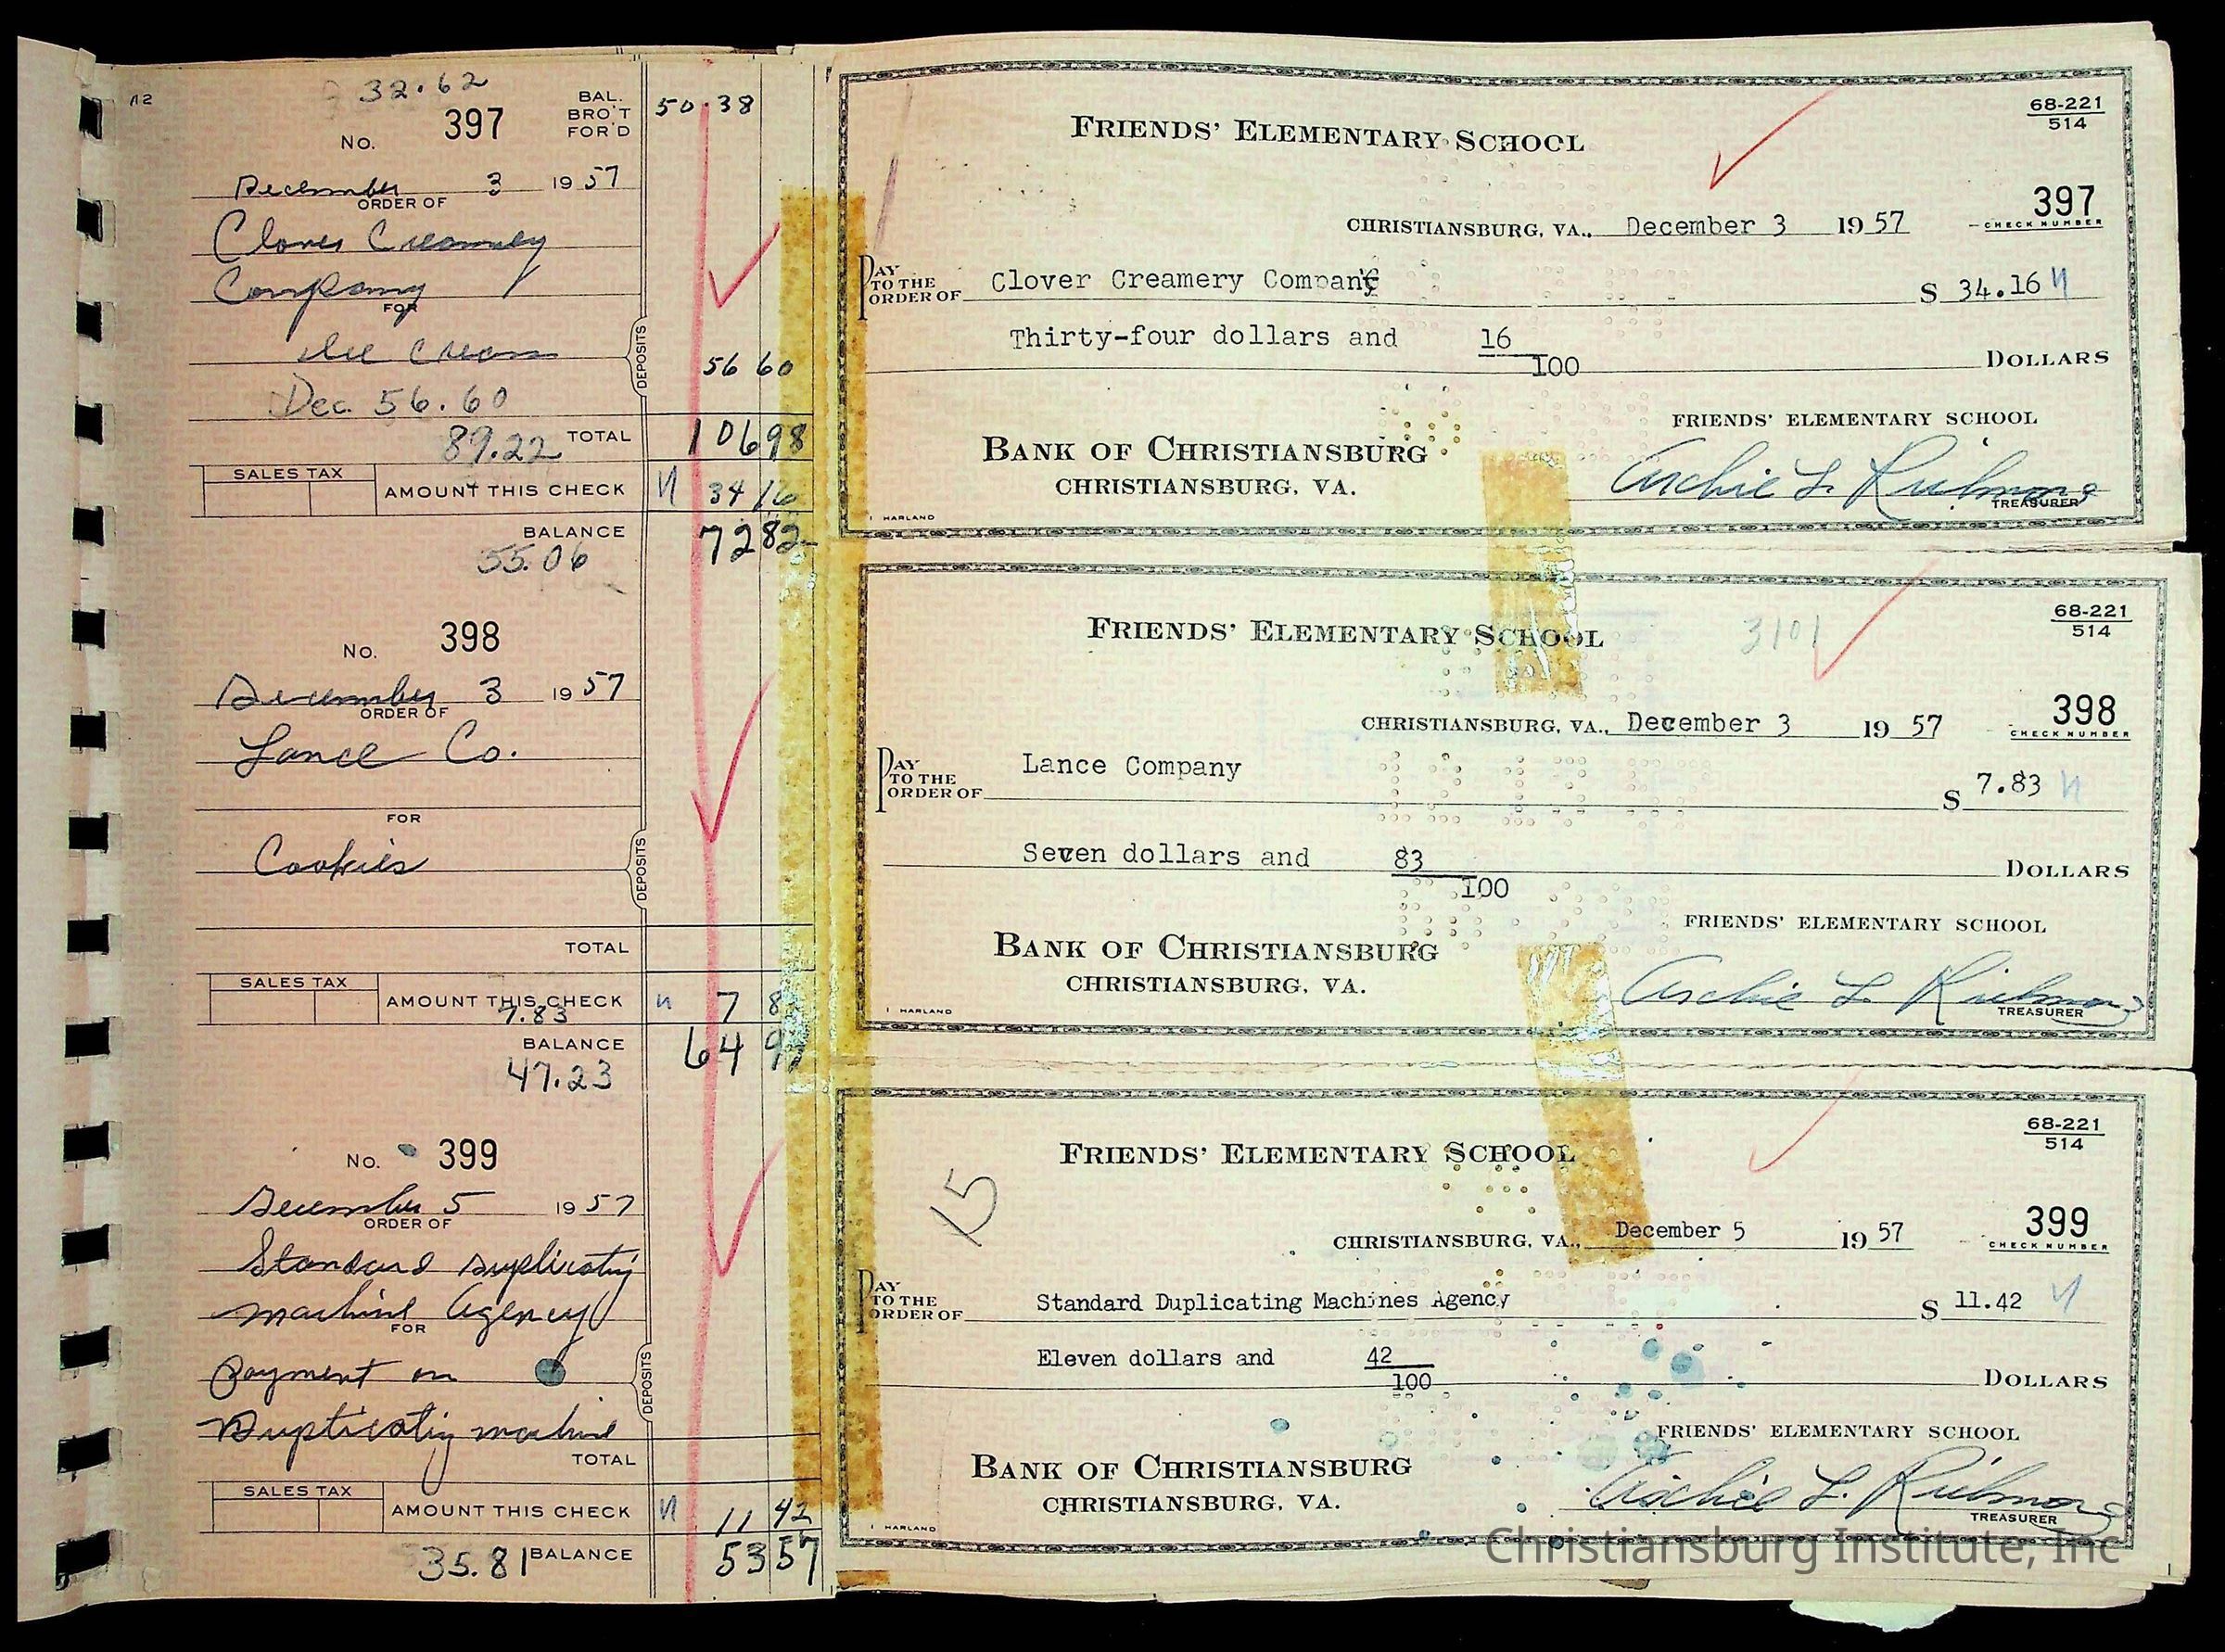 32.62
No. 397
BAL.
BRO'T
FOR'D
50.38
December 3 1957
ORDER OF
Clover Creamery
Company
FOR
Ice Cream
DEPOSITS
56 60
Dec. 56.60
89.22 TOTAL 106 98
SALES TAX
AMOUNT THIS CHECK 34 16
BALANCE 72 82
55.06
No. 398
December 3 1957
ORDER OF
Lance Co.
FOR
Cookies
DEPOSITS
TOTAL
SALES TAX
AMOUNT THIS CHECK 7 8
7.83
BALANCE 64 9
47.23
No. 399
December 5 1957
ORDER OF
Standard Duplicating
Machine Agency
FOR
Payment on
Duplicating machine
DEPOSITS
TOTAL
SALES TAX
AMOUNT THIS CHECK 11 42
35.81 BALANCE 53 57
FRIENDS' ELEMENTARY SCHOOL
68-221
514
CHRISTIANSBURG, VA., December 3 1957
397
CHECK NUMBER
PAY
TO THE
ORDER OF
Clover Creamery Company
$ 34.16
Thirty-four dollars and 16
100
DOLLARS
FRIENDS' ELEMENTARY SCHOOL
BANK OF CHRISTIANSBURG
CHRISTIANSBURG, VA.
Archie L. Richmond
TREASURER
HARLAND
FRIENDS' ELEMENTARY SCHOOL
3101
68-221
514
CHRISTIANSBURG, VA., December 3 1957
398
CHECK NUMBER
PAY
TO THE
ORDER OF
Lance Company
$ 7.83
Seven dollars and 83
100
DOLLARS
FRIENDS' ELEMENTARY SCHOOL
BANK OF CHRISTIANSBURG
CHRISTIANSBURG, VA.
Archie L. Richmond
TREASURER
HARLAND
FRIENDS' ELEMENTARY SCHOOL
68-221
514
15
CHRISTIANSBURG, VA., December 5 1957
399
CHECK NUMBER
PAY
TO THE
ORDER OF
Standard Duplicating Machines Agency
$ 11.42
Eleven dollars and 42
100
DOLLARS
FRIENDS' ELEMENTARY SCHOOL
BANK OF CHRISTIANSBURG
CHRISTIANSBURG, VA.
Archie L. Richmond
TREASURER
HARLAND
Christiansburg Institute, Inc